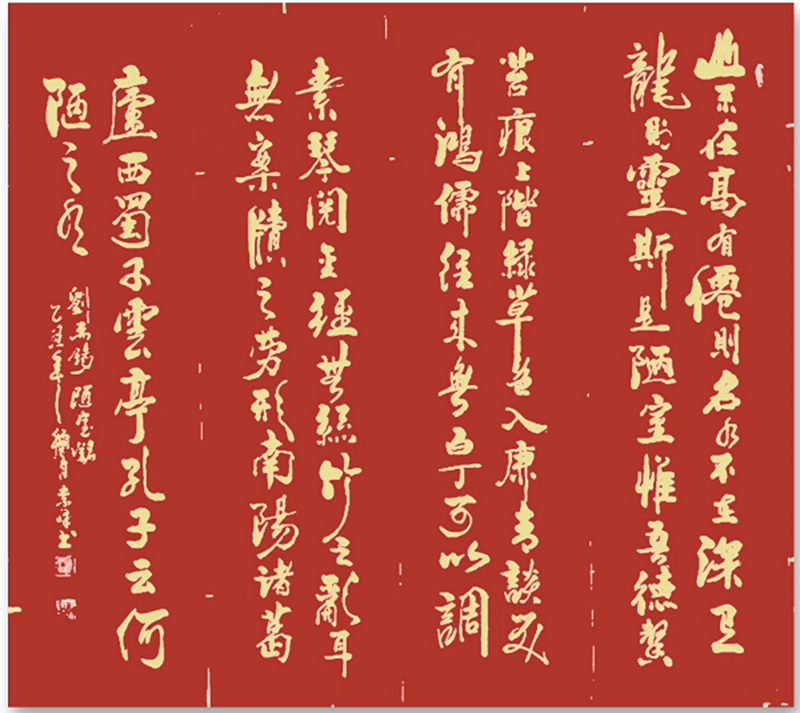 山不在高有僊則名水不在深有
龍則靈斯是陋室惟吾德馨
苔痕上階緑草色入廉青談笑
有鴻儒往来無白丁可以調
素琴閲金經無絲竹之亂耳
無案牘之勞形南陽諸葛
廬西蜀子雲亭孔子云何
陋之有
劉禹錫陋室銘
乙丑年月书